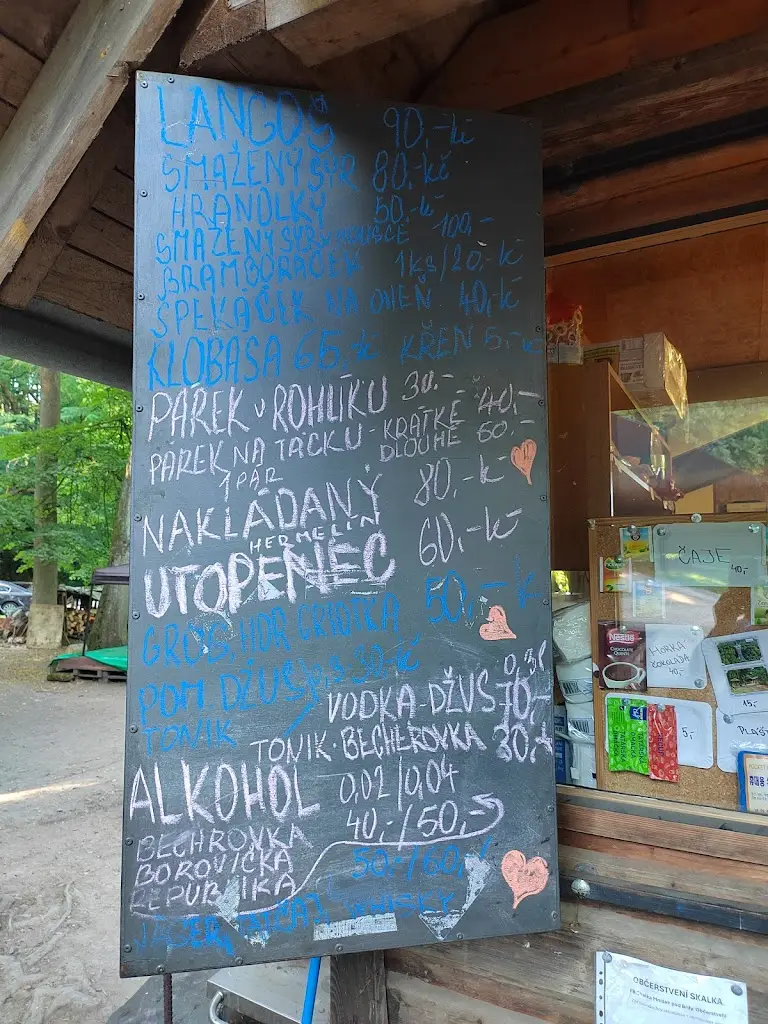 LANGOŠ 90,-kč
SMAŽENÝ SÝR 80,-kč
HRANOLKY 50,-kč
SMAŽENÝ SÝR V HOUSCE 100,-
BRAMBORÁČEK 1KS/20,-kč
ŠPEKÁČEK NA OHEŇ 40,-kč
KLOBÁSA 65,-kč KŘEN 5,-kč
PÁREK V ROHLÍKU 30,-
PÁREK NA TÁCKU - KRÁTKÉ 40,-
1 PÁR DLOUHÉ 60,-
NAKLÁDANÝ 80,-kč
HERMELÍN
UTOPENEC 60,-kč
GROG, HOR. GRIOTKA 50,-kč
POM. DŽUS 0,3 30,-kč
TONIK
VODKA-DŽUS 0,3l 70,-
TONIK-BECHEROVKA
ALKOHOL 0,02/0,04
BECHROVKA 40,-/50,-
BOROVIČKA
REPUBLIKA 50,-/60,-
ČAJE
40,-
Nestlé
HORKÁ
ČOKOLÁDA
40,-
15,-
5,-
PLÁŠT
OBČERSTVENÍ SKALKA